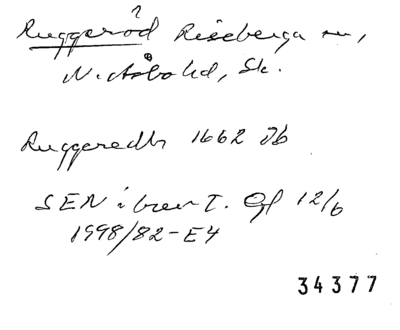 ?
Ruggeröd Riseberga sn,
N. Åsbo hd, Sk.
Ruggeredh 1662 Jb
SEN i brev t. Gf 12/6
1998/82-E4
34377